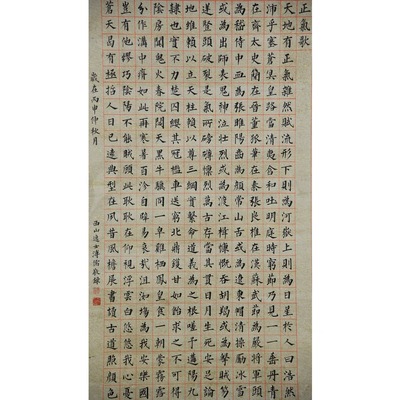 正氣歌
天地有正氣雜然賦流形下則為河嶽上則為日星於人曰浩然
沛乎塞蒼冥皇路當清夷含和吐明庭時窮節乃見一一垂丹青
在齊太史簡在晉董狐筆在秦張良椎在漢蘇武節為嚴將軍頭
為嵇侍中血為張睢陽齒為顏常山舌或為遼東帽清操厲冰雪
或為出師表鬼神泣壯烈或為渡江楫慷慨吞胡羯或為擊賊笏
逆豎頭破裂是氣所磅礴凜烈萬古存當其貫日月生死安足論
地維賴以立天柱賴以尊三綱實繫命道義為之根嗟予遘陽九
隸也實不力楚囚纓其冠傳車送窮北鼎鑊甘如飴求之不可得
陰房闃鬼火春院閟天黑牛驥同一皂雞棲鳳凰食一朝蒙霧露
分作溝中瘠如此再寒暑百沴自辟易哀哉沮洳場為我安樂國
豈有他繆巧陰陽不能賊顧此耿耿在仰視浮雲白悠悠我心憂
蒼天曷有極哲人日已遠典型在夙昔風檐展書讀古道照顏色
歲在丙申仲秋月
西山逸士溥儒敬錄